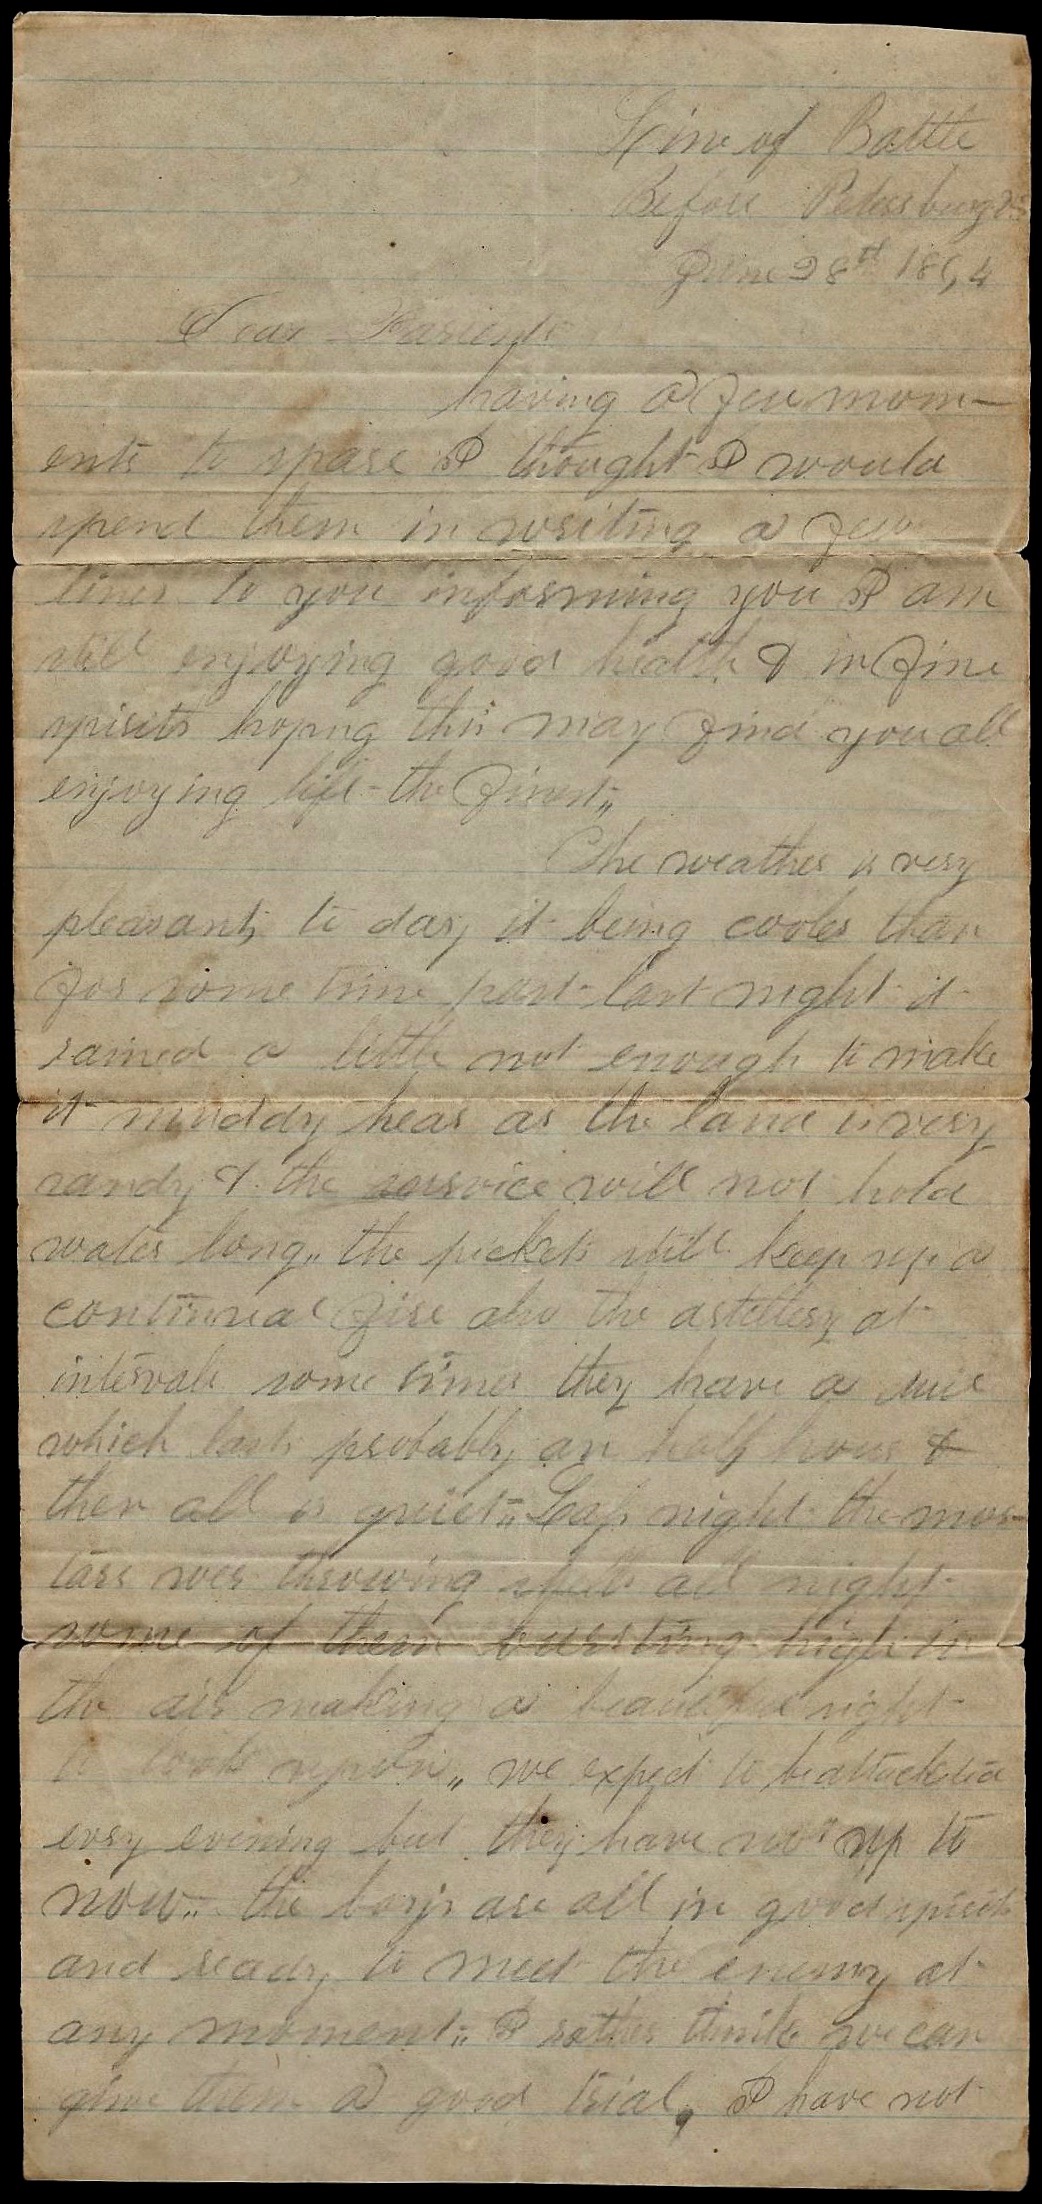 Line of Battle
Before Petersburg Va
June 28th 1864
Dear Parients
having a few mom-
ents to spare I thought I would
spend them in writing a few
lines to you informing you I am
still enjoying good health & in fine
spirits hoping this may find you all
enjoying life the finest,,
The weather is very
pleasant, to day it being cooler than
for some time past last night it
rained a little not enough to make
it muddy hear as the land is very
sandy & the will not hold
water long,, the pickets still keep up a
continual fire also the artillery at
intervals some times they have a
which lasts probably an half hour &
then all is quiet,, Last night the mor-
tars wer throwing shells all night
some of them bursting high in
the air making a beautiful sight
to look upon,, we expect to be attackted
evry evening but they have not up to
now,, the boys are all in good spirits
and ready to meet the enemy at
any moment,, I rather think we can
give them a good trial, I have not